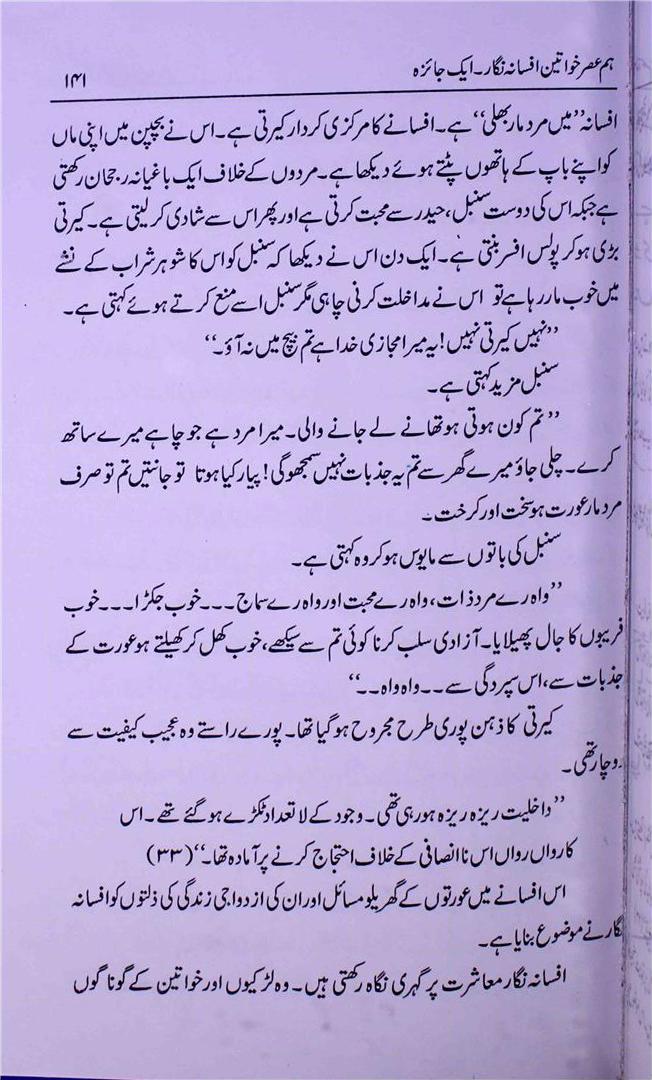 ہم عصر خواتین افسانہ نگار۔ ایک جائزہ
۱۴۱
افسانہ ’’میں مرد مار بھلی‘‘ ہے۔ افسانے کا مرکزی کردار کیرتی ہے۔ اس نے بچپن میں اپنی ماں
کو اپنے باپ کے ہاتھوں پٹتے ہوئے دیکھا ہے۔ مردوں کے خلاف ایک باغیانہ رجحان رکھتی
ہے جبکہ اس کی دوست سنبل، حیدر سے محبت کرتی ہے اور پھر اس سے شادی کر لیتی ہے۔ کیرتی
بڑی ہو کر پولس افسر بنتی ہے۔ ایک دن اس نے دیکھا کہ سنبل کو اس کا شوہر شراب کے نشے
میں خوب مار رہا ہے تو اس نے مداخلت کرنی چاہی مگر سنبل اسے منع کرتے ہوئے کہتی ہے۔
’’نہیں کیرتی نہیں! یہ میرا مجازی خدا ہے تم بیچ میں نہ آؤ۔‘‘
سنبل مزید کہتی ہے۔
’’تم کون ہوتی ہو تھانے لے جانے والی۔ میرا مرد ہے جو چاہے میرے ساتھ
کرے۔ چلی جاؤ میرے گھر سے تم یہ جذبات نہیں سمجھو گی! پیار کیا ہوتا تو جانتیں تم تو صرف
مرد مار عورت ہو سخت اور کرخت۔
سنبل کی باتوں سے مایوس ہو کر وہ کہتی ہے۔
’’واہ رے مرد ذات، واہ رے محبت اور واہ رے سماج ۔۔۔ خوب جکڑا ۔۔۔ خوب
فریبوں کا جال پھیلایا۔ آزادی سلب کرنا کوئی تم سے سیکھے، خوب کھل کر کھیلتے ہو عورت کے
جذبات سے، اس سپردگی سے ۔۔ واہ واہ ۔۔‘‘
کیرتی کا ذہن پوری طرح مجروح ہو گیا تھا۔ پورے راستے وہ عجیب کیفیت سے
دوچار تھی۔
’’داخلیت ریزہ ریزہ ہو رہی تھی۔ وجود کے لا تعداد ٹکڑے ہو گئے تھے۔ اس
کا رواں رواں اس نا انصافی کے خلاف احتجاج کرنے پر آمادہ تھا۔‘‘ (۳۳)
اس افسانے میں عورتوں کے گھریلو مسائل اور ان کی ازدواجی زندگی کی ذلتوں کو افسانہ
نگار نے موضوع بنایا ہے۔
افسانہ نگار معاشرت پر گہری نگاہ رکھتی ہیں۔ وہ لڑکیوں اور خواتین کے گوناگوں